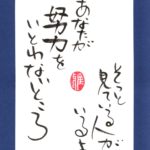 そっと
見ている人が
いるよ
あなたが
努力を
いとわないところ